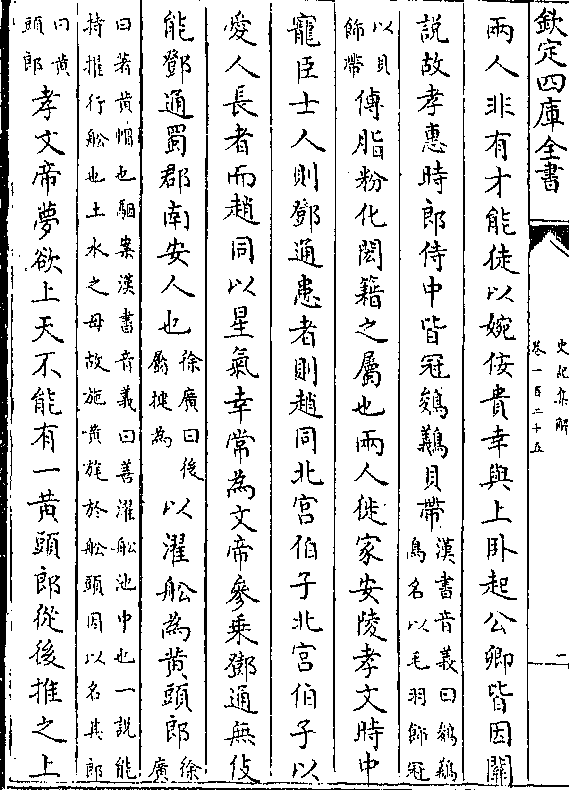 欽定四庫全書
史記集解
卷一百二十五
二
兩人非有才能徒以婉佞貴幸與上卧起公卿皆因關
説故孝惠時郎侍中皆冠鵔鸃貝帶漢書音義曰鵔鸃
鳥名以毛羽飾冠
以貝
飾帶傅脂粉化閎籍之屬也兩人徙家安陵孝文時中
寵臣士人則鄧通患者則趙同北宫伯子北宫伯子以
愛人長者而趙同以星氣幸常為文帝參乗鄧通無伎
能鄧通蜀郡南安人也徐廣曰後
屬揵為以濯船為黄頭郎徐
廣
曰著黄帽也駰案漢書音義曰善濯船池中也一説能
持推行船也土水之母故施黄旄於船頭因以名其郎
曰黄
頭郎孝文帝夢欲上天不能有一黄頭郎從後推之上